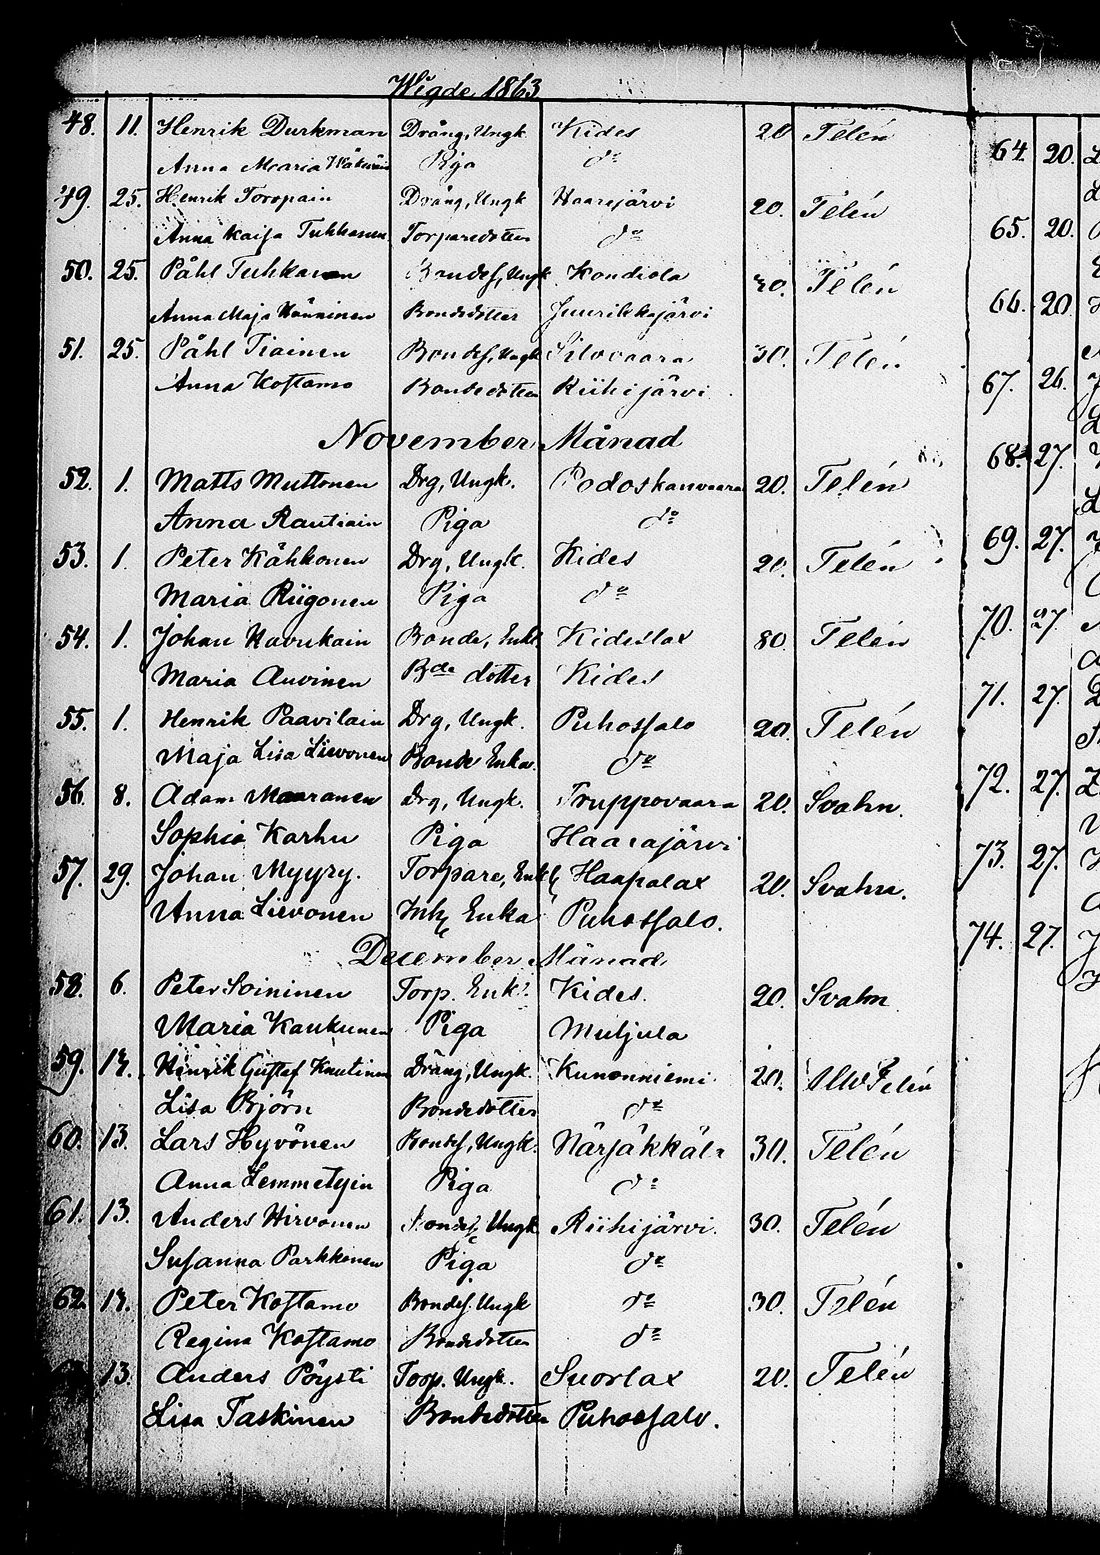 Wigde 1863
48. 11. Henrik Durkman Dräng, Ungk. Kides 20 Telén
Anna Maria Piga do
49. 25. Henrik Toropain Dräng, Ungk Haarajärvi 20. Telén
Anna Kaisa Tuhkanen Torparedotter do
50. 25. Påhl Tuhkanen Bondes, Ungk Kondiola 20. Telén
Anna Maja Könninen Bondedotter Juurikkajärvi
51. 25. Påhl Tiainen Bondes, Ungk Silovaara 30. Telén
Anna Kostamo Bondedotter Riihijärvi
November Månad
52. 1. Matts Muttonen Drg, Ungk. Podoskanvaara 20. Telén
Anna Rautiain Piga do
53. 1. Peter Kähkonen Drg, Ungk. Kides 20. Telén
Maria Riigonen Piga do
54. 1. Johan Havukain Bonde, Enkl. Kideslax 80. Telén
Maria Auvinen Bde dotter Kides
55. 1. Henrik Paavilain Drg, Ungk. Puhossalo 20. Telén
Maja Lisa Lievonen Bonde Enka. do
56. 8. Adam Maaranen Drg, Ungk. Truppovaara 20. Svahn.
Sophia Karhu Piga Haarajärvi
57. 29. Johan Myyry. Torpare, Enkl Haapalax 20. Svahn.
Anna Lievonen Inh Enka Puhossalo.
December Månad
58. 6. Peter Soininen Torp. Enkl. Kides. 20. Svahn
Maria Kaukunen Piga Muljula
59. Henrik Gustaf Knutinen Dräng, Ungk. Kunonniemi 20. Telén
Lisa Björn Bondedotter do
60. 13. Lars Hyvönen Bondes, Ungk. Närsäkkälä 30. Telén
Anna Lemmetyin Piga do
61. 13. Anders Hirvonen Bondes, Ungk Riihijärvi. 30. Telén
Susanna Parkkonen Piga do
62. Peter Kostamo Bondes. Ungk do 30. Telén
Regina Kostamo Bondedotter do
13. Anders Pöysti Torp. Ungk. Suorlax 20. Telén
Lisa Taskinen Bondedotter Puhossalo.
64. 20.
65. 20.
66. 20.
67. 26.
68. 27.
69. 27.
70. 27
71. 27.
72. 27.
73. 27.
74. 27.